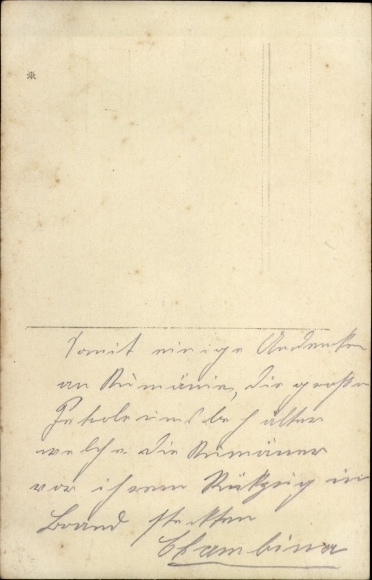 Somit einige Andenken
an Rumänien, die große
Petroleumsbehälter
welche die Rumäner
vor ihrem Rükzug in
Brand steckten